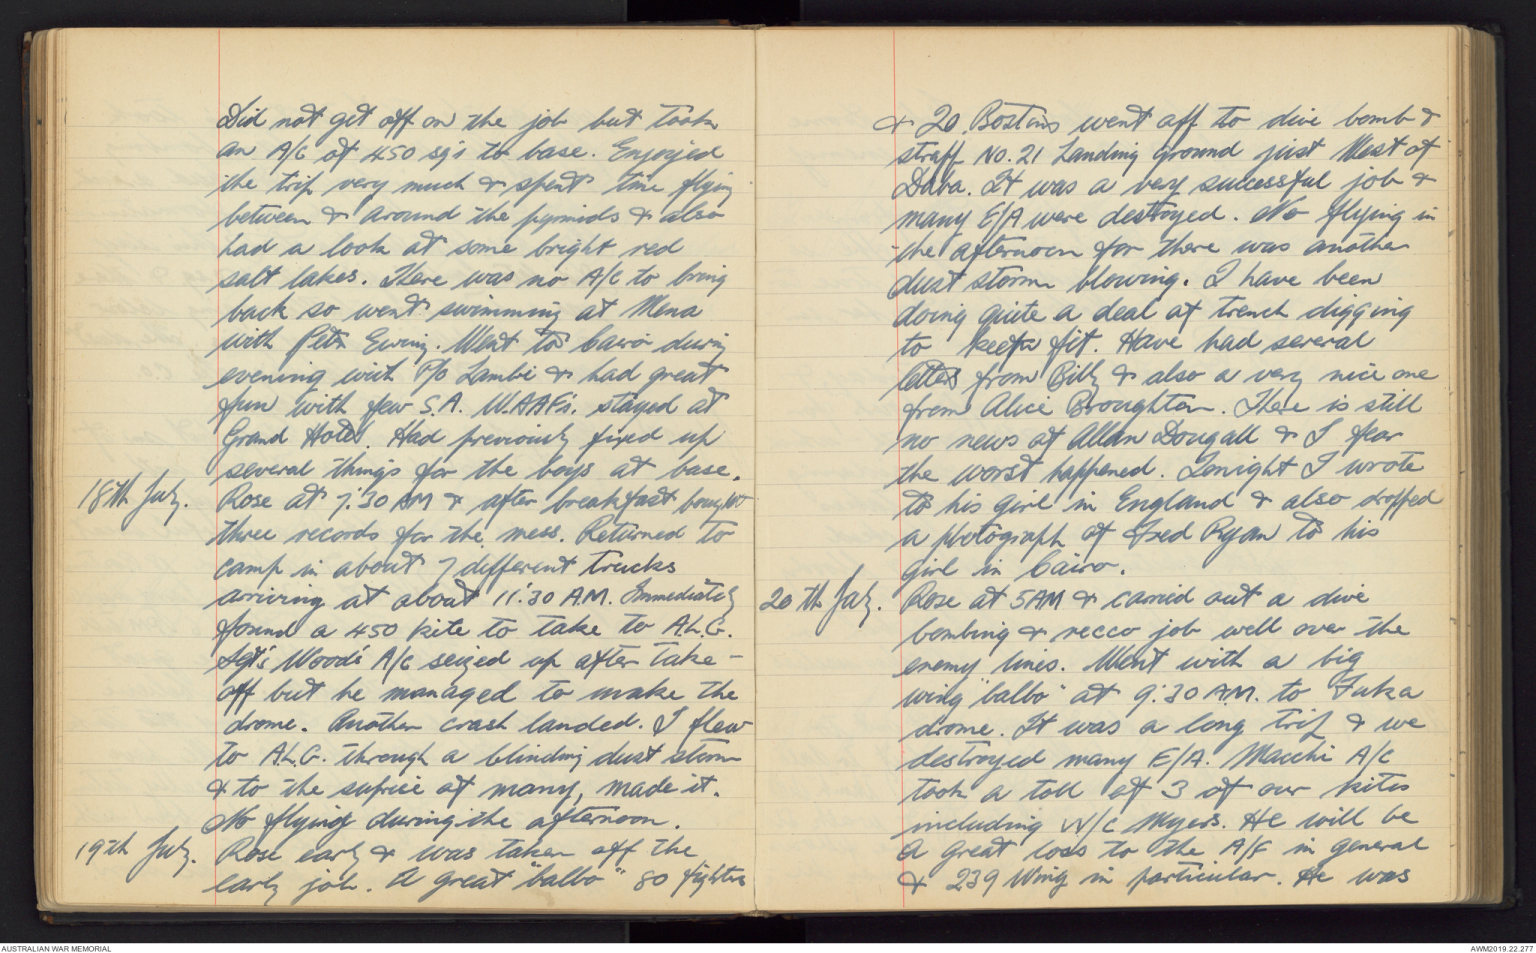 Did not get off on the job but took
an A/C of 450 sq's to base. Enjoyed
the trip very much & spent time flying
between & around the pyrmids & also
had a look at some bright red
salt lakes. There was no A/C to bring
back so went swimming at Mena
with Pete Ewing. Went to Cairo during
evening with P/O Lambie & had great
fun with few S.A. W.A.A.F's. stayed at
Grand Hotel. Had previously fixed up
several things for the boys at base.
18th July. Rose at 7.30 AM & after breakfast bought
three records for the mess. Returned to
camp in about 7 different trucks
arriving at about 11.30 A.M. Immediately
found a 450 kite to take to A.L.G.
Sgt's Wood's A/C seized up after take-
off but he managed to make the
drome. Another crash landed. I flew
to A.L.G. through a blinding dust storm
& to the suprice of many, made it.
No flying during the afternoon.
19th July. Rose early & was taken off the
early job. A great "balbo" 80 fighters
& 20 Bostons went off to dive bomb &
straff No. 21 Landing ground just West of
Daba. It was a very successful job &
many E/A were destroyed. No flying in
the afternoon for there was another
dust storm blowing. I have been
doing quite a deal of trench digging
to keep fit. Have had several
letters from Billy & also a very nice one
from Alice Broughton. There is still
no news of Allan Dougall & I fear
the worst happened. Tonight I wrote
to his girl in England & also dropped
a photograph of Fred Ryan to his
girl in Cairo.
20th July. Rose at 5AM & carried out a dive
bombing & recco job well over the
enemy lines. Went with a big
wing "balbo" at 9.30 A.M. to Fuka
drome. It was a long trip & we
destroyed many E/A. Macchi A/C
took a toll of 3 of our kites
including W/C Myers. He will be
a great loss to the A/F in general
& 239 Wing in particular. He was
AUSTRALIAN WAR MEMORIAL
AWM2019.22.277